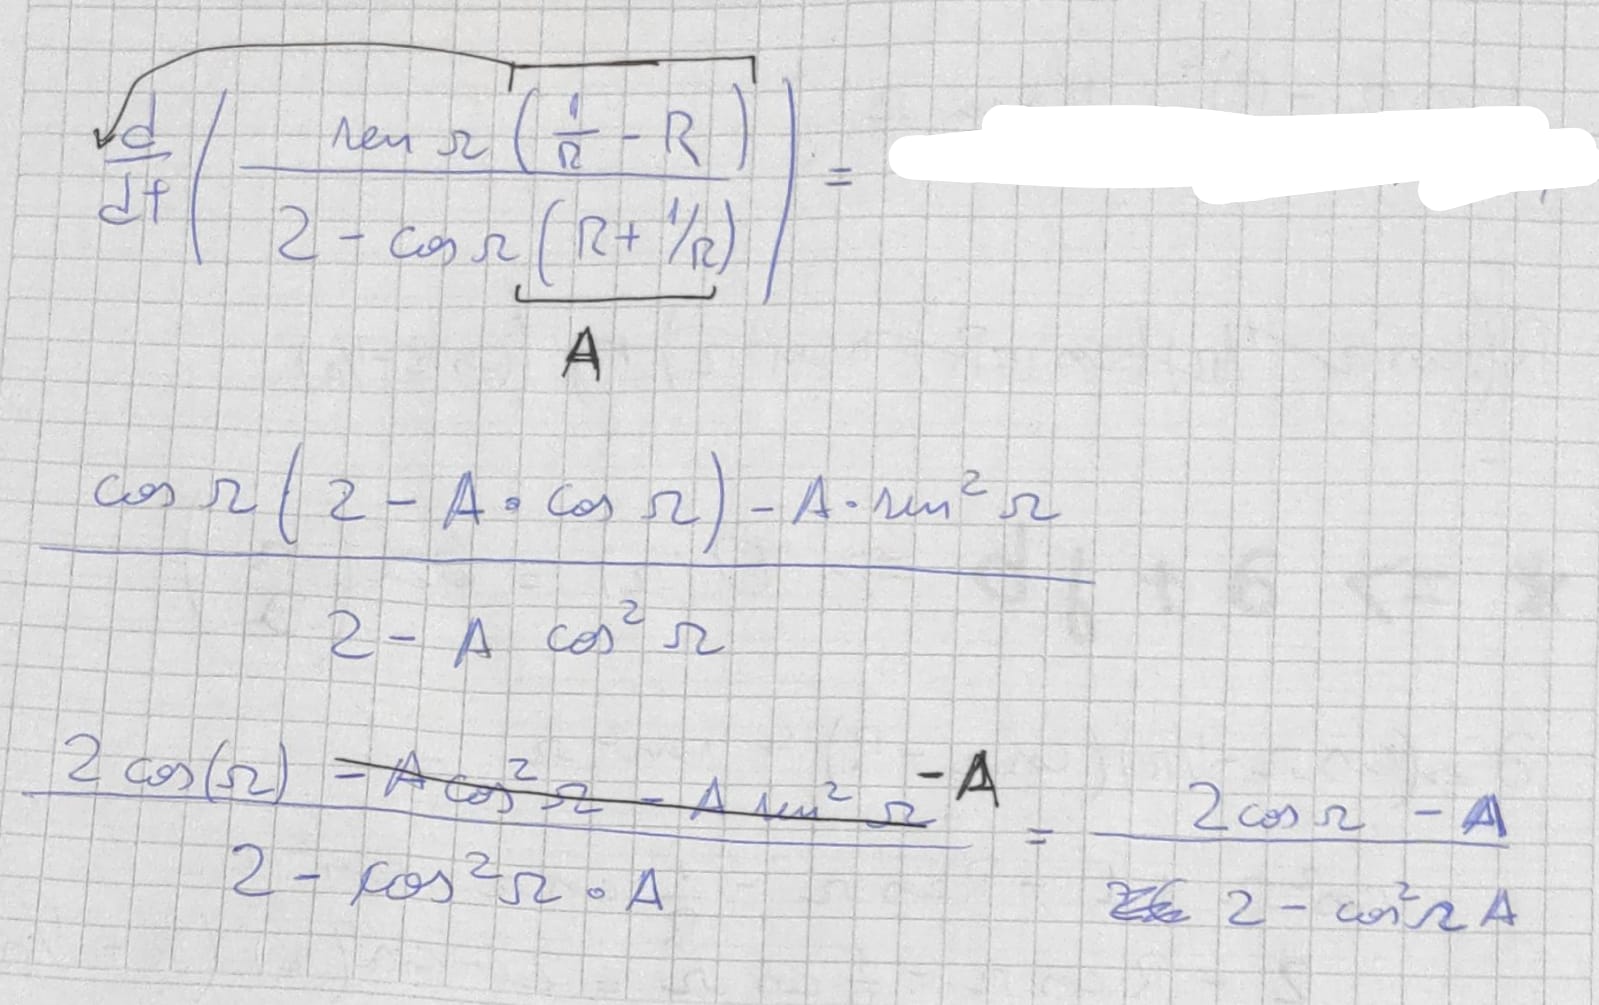 d/df ( sen Ω (1/R - R) / 2 - cos Ω (R + 1/R) ) =
A
cos Ω (2 - A · cos Ω) - A · sen² Ω / 2 - A cos² Ω
2 cos(Ω) - A cos² Ω - A sen² Ω - A / 2 - cos² Ω · A = 2 cos Ω - A / 2 - cos² Ω A